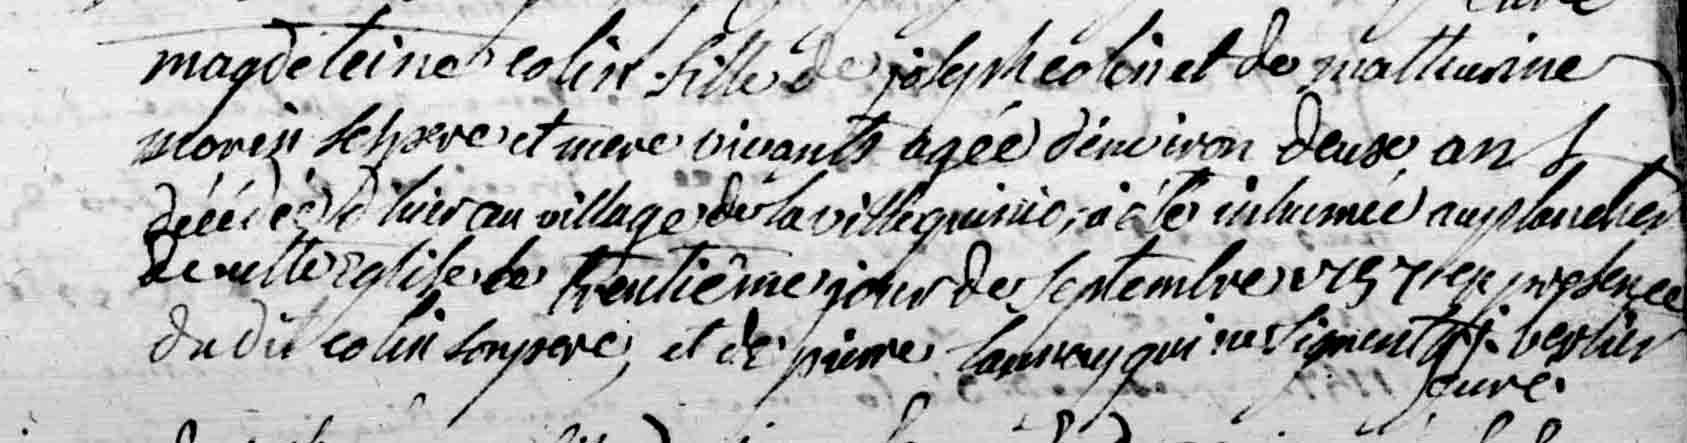 magdeleine colin fille de joseph colin et de mathurine
morin ses pere et mere vivants agée d'environ deux ans
décédée d'hier au village de la villequinio, a été inhumée au placitre
de cette eglise le trentième jour de septembre 1757 en presence
du dit colin son pere, et de pierre qui ne signent
curé